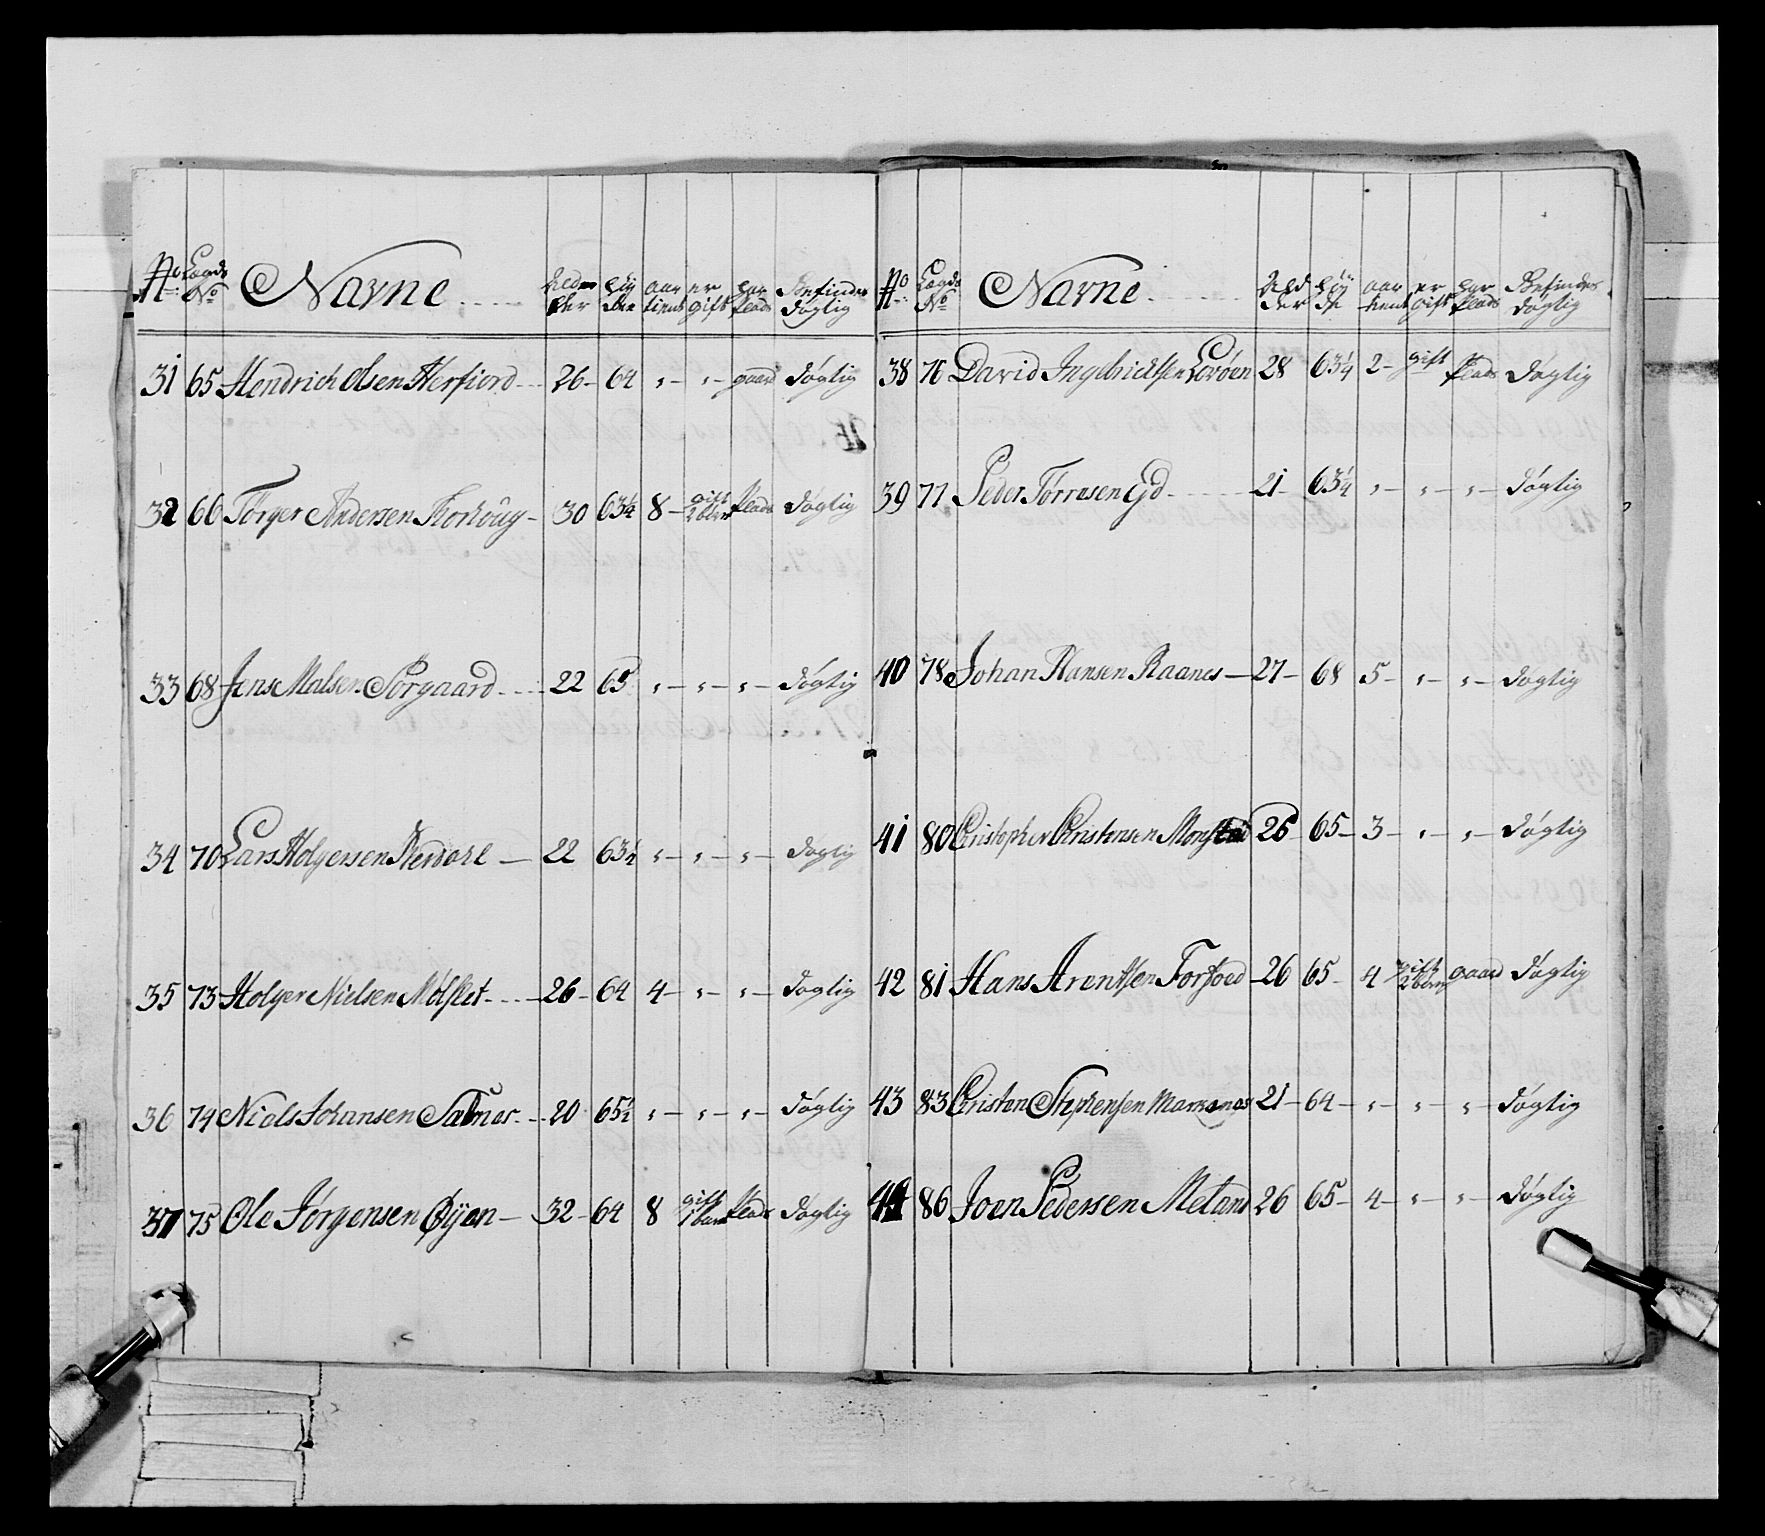 No Lægds No Navne Alder Høy de aar tient er gift har Plads Befindes døgtig
31 65 Hendrich Olsen Herfiord 26 64 „ „ gaard døgtig
32 66 Törger Andersen Torhoug 30 63½ 8 gift 2 børn Plads døgtig
33 68 Jens Malsen Sorgaard 22 65 „ „ „ døgtig
34 70 Lars Holgersen Nerdare 22 63½ „ „ „ døgtig
35 73 Holger Nielsen Mölslet 26 64 4 „ „ døgtig
36 74 Niels Johansen Sætnes 20 65½ „ „ „ døgtig
37 75 Ole Jørgensen Øyen 32 64 8 gift 1 barn Plads døgtig
No Lægds No Navne Alder Høy de aar tient er gift har Plads Befindes døgtig
38 76 David Ingebrictsen Lorøen 28 63¼ 2 gift Plads døgtig
39 77 Peder Tørresen Eid 21 63¼ „ „ „ døgtig
40 78 Johan Hansen Raanes 27 68 5 „ „ døgtig
41 80 Christopher Christensen 26 65 3 „ „ døgtig
42 81 Hans Arentsen Forsoed 26 65 4 gift 2 børn gaard døgtig
43 83 Christen Stephensen 21 64 „ „ „ døgtig
44 86 Joen Pedersen Meland 26 65 4 „ „ døgtig